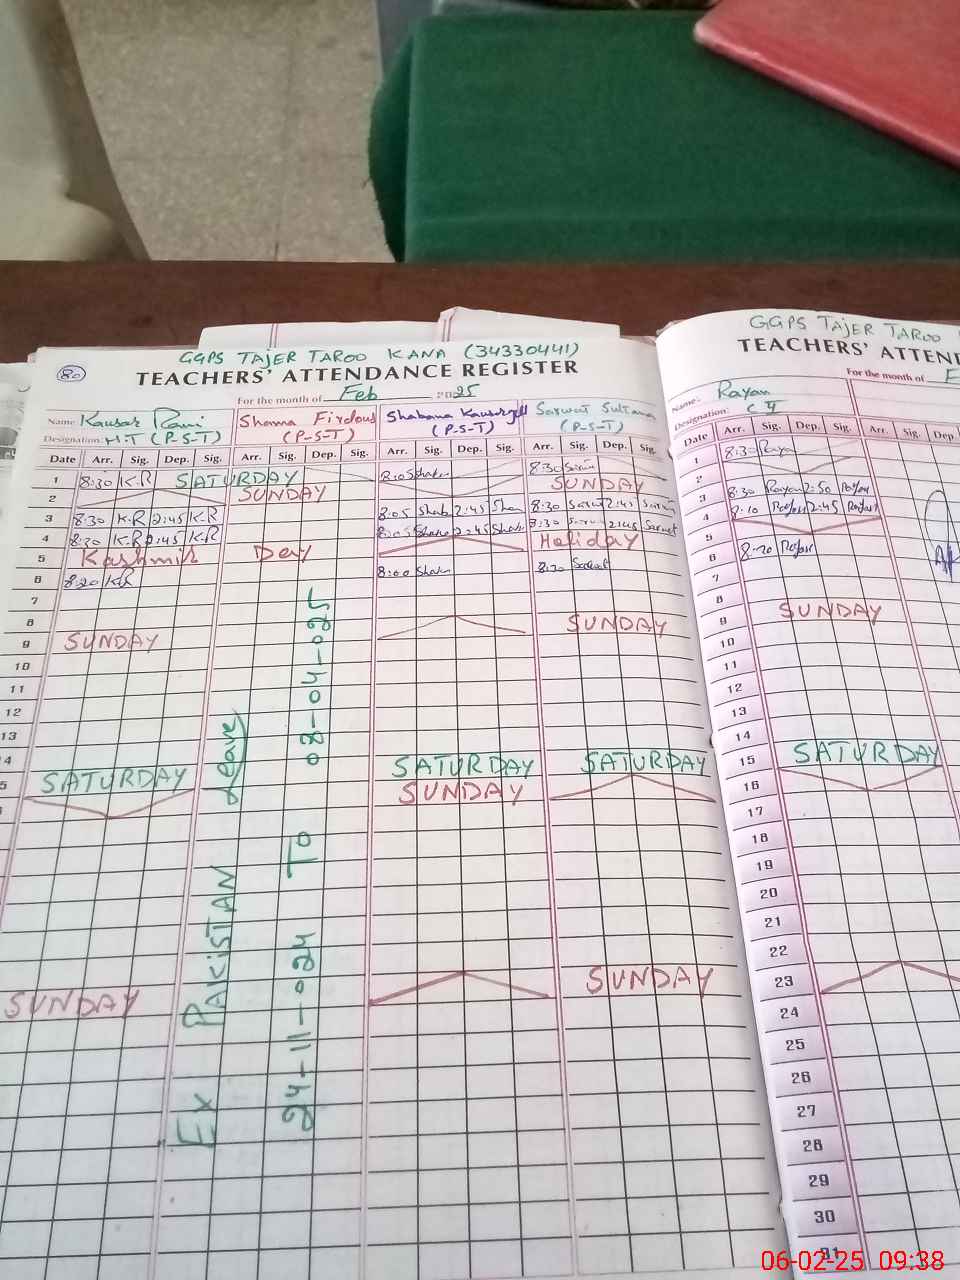 GGPS TAJER TAROO KANA (34330441)
80
TEACHERS' ATTENDANCE REGISTER
For the month of Feb 2025
Name: Kausar Rani Shama Firdous Shabana Kausar Sarwat Sultana
Designation: H.T (P-S-T) (P-S-T) (P-S-T) (P-S-T)
Date Arr. Sig. Dep. Sig. Arr. Sig. Dep. Sig. Arr. Sig. Dep. Sig. Arr. Sig. Dep. Sig.
1 8:30 K.R SATURDAY 8:05 8:30
2 SUNDAY SUNDAY
3 8:30 K.R 2:45 K.R 8:05 2:45 8:30 2:45
4 8:30 K.R 2:45 K.R 8:05 2:45 8:30 2:45 Sarwat
5 Kashmir Day Holiday
6 8:30 K.R 8:00 8:30 Sarwat
7
8
9 SUNDAY SUNDAY
10
11
12
13
14
5 SATURDAY SATURDAY SATURDAY
SUNDAY
SUNDAY SUNDAY
Ex PAKISTAN Leave
24-11-024 To 03-04-025
GGPS TAJER TAROO
TEACHERS' ATTEN
For the month of
Name: Rayan
Designation:
Date Arr. Sig. Dep. Sig. Arr. Sig. Dep.
1 8:30 Rayan
2
3 8:30 Rayan 2:50 Rayan
4 8:10 Rayan 2:45 Rayan
5
6 8:20 Rayan
7
8
9 SUNDAY
10
11
12
13
14
15 SATURDAY
16
17
18
19
20
21
22
23
24
25
26
27
28
29
30
31
06-02-25 09:38